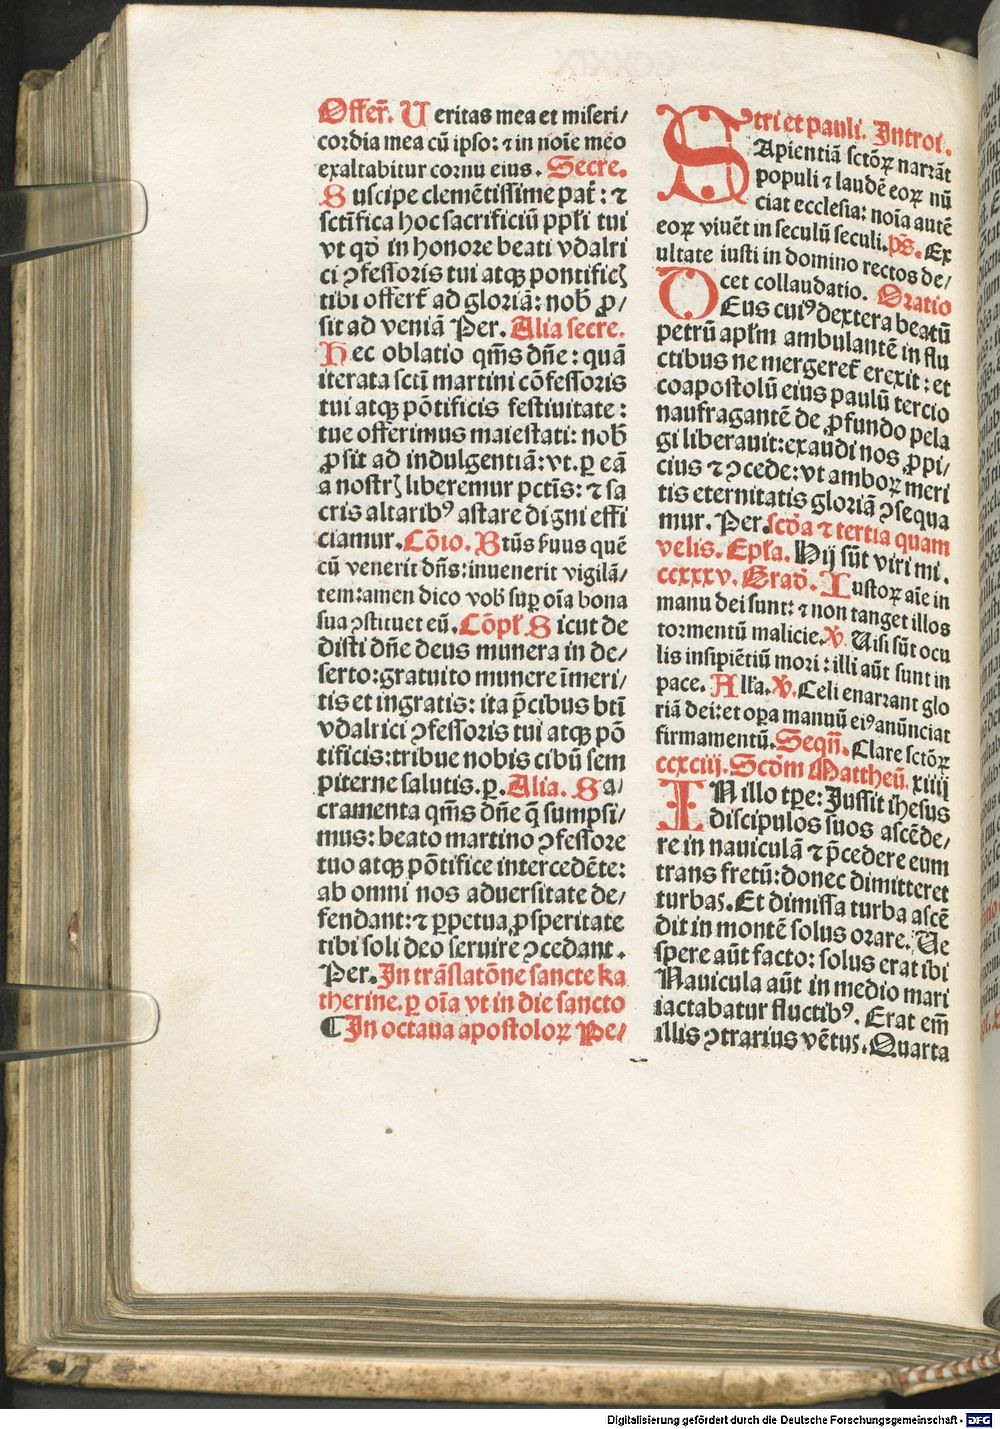 Offer̄. Ueritas mea et miseri/
cordia mea cū ipso: ⁊ in noīe meo
exaltabitur cornu eius. Secre.
Suscipe clemētissime pat̄: ⁊
sctīfica hoc sacrificiū ppl̄i tui
vt qō in honore beati vdalri
ci ꝯfessoris tui atqꝫ pontificꝭ
tibi offert̄ ad gloriā: nob̄ ꝓ/
sit ad veniā Per. Alia secre.
Hec oblatio qm̄s dn̄e: quā
iterata sctī martini cōfessoris
tui atqꝫ pōtificis festiuitate:
tue offerimus maiestati: nob̄
ꝓsit ad indulgentiā: vt. ꝑ eā
a nostrꝭ liberemur pctīs: ⁊ sa
cris altaribꝰ astare digni effi
ciamur. Cōio. Btūs s̄uus quē
cū venerit dn̄s: inuenerit vigilā/
tem: amen dico vob̄ suꝑ oīa bona
sua ꝯstituet eū. Cōpl̄. Sicut de
disti dn̄e deus munera in de/
serto: gratuito munere īmeri/
tis et ingratis: ita p̄cibus btī
vdalrici ꝯfessoris tui atqꝫ pō
tificis: tribue nobis cibū sem
piterne salutis. ꝑ. Alia. Sa/
cramenta qm̄s dn̄e q̄ sumpsi/
mus: beato martino ꝯfessore
tuo atqꝫ pōtifice intercedēte:
ab omni nos aduersitate de/
fendant: ⁊ ꝑpetua ꝓsperitate
tibi soli deo seruire ꝯcedant.
Per. In trāslatōne sancte ka
therine. ꝑ oīa vt in die sancto
¶ In octaua apostoloꝝ Pe/
tri et pauli. Introi.
SApientiā sctōꝝ narrāt
populi ⁊ laudē eoꝝ nū
ciat ecclesia: noīa autē
eoꝝ viuēt in seculū seculi. ps̄. Ex
ultate iusti in domino rectos de/
cet collaudatio. Oratio
DEus cuiꝰ dextera beatū
petrū apl̄m ambulantē in flu
ctibus ne mergeret̄ erexit: et
coapostolū eius paulū tercio
naufragantē de ꝓfundo pela
gi liberauit: exaudi nos ꝓpi/
cius ⁊ ꝯcede: vt amboꝝ meri
tis eternitatis gloriā ꝯsequa
mur. Per. scdā ⁊ tertia quam
velis. Epl̄a. Hij sūt viri mi.
ccxxxv. Gradō. Iustoꝝ aīe in
manu dei sunt: ⁊ non tanget illos
tormentū malicie. ℣. Uisi sūt ocu
lis insipiētiū mori: illi aūt sunt in
pace. All̄a. ℣. Celi enarrant glo
riā dei: et oꝑa manuū eiꝰ anūnciat
firmamentū. Seqn̄. Clare sctōꝝ
ccxciij. Scdm̄ Mattheū. xiiij
IN illo tꝑe: Jussit ih̄esus
discipulos suos ascēde/
re in nauiculā ⁊ p̄cedere eum
trans fretū: donec dimitteret
turbas. Et dimissa turba ascē
dit in montē solus orare. Ue
spere aūt facto: solus erat ibi
Nauicula aūt in medio mari
iactabatur fluctibꝰ. Erat em̄
illis ꝯtrarius vētus. Quarta
Digitalisierung gefördert durch die Deutsche Forschungsgemeinschaft - DFG